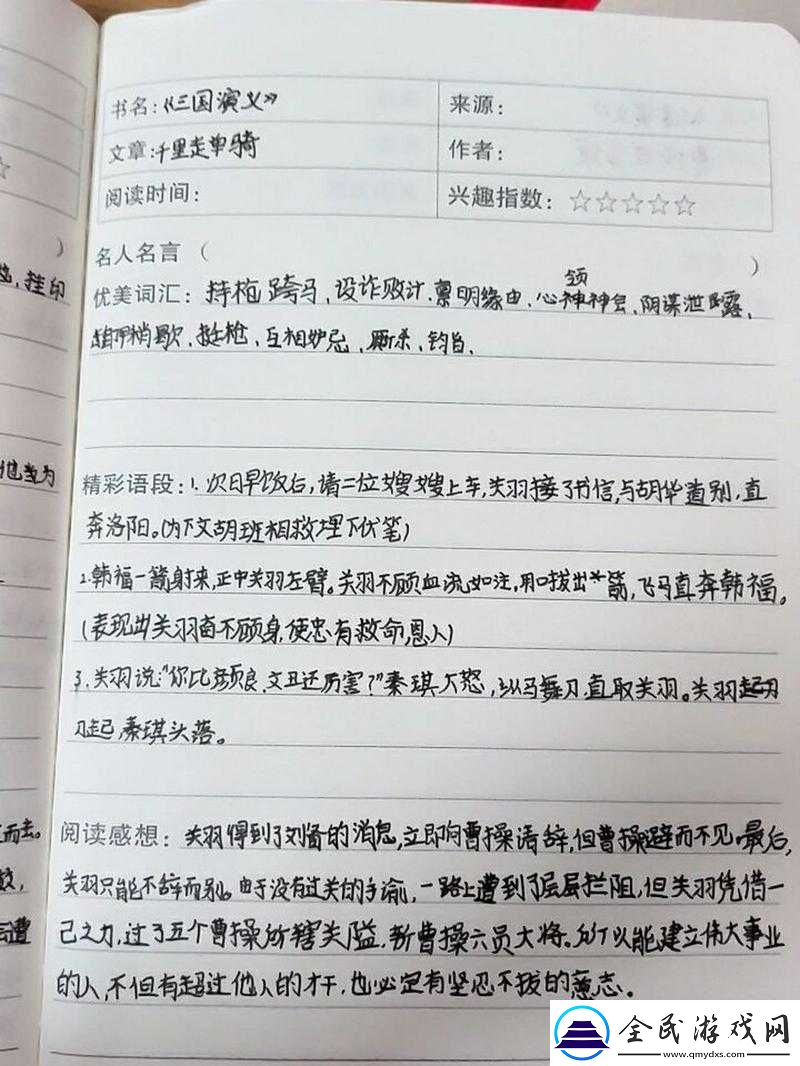 书名:《三国演义》 来源:
文章:千里走单骑 作者:
阅读时间: 兴趣指数:☆☆☆☆☆
名人名言 ( )
领
优美词汇: 持枪跨马、设诈败计、禀明缘由、心神神会、阴谋泄露、
梢歇、挺枪、互相妒忌、厮杀、钧旨、
精彩语段:1、次日早饭后,请二位嫂嫂上车,关羽接了书信,与胡华道别,直
奔洛阳。(为下文胡班相救埋下伏笔)
2、韩福一箭射来,正中关羽左臂。关羽不顾血流如注,用口拔出箭,飞马直奔韩福。
(表现出关羽奋不顾身,使忠有救命恩人)
3、关羽说:“你比颜良、文丑还厉害?”秦琪大怒,纵马舞刀,直取关羽。关羽起刀
刀起,秦琪头落。
阅读感想:关羽得到了刘备的消息,立即向曹操请辞,但曹操避而不见。最后,
关羽只能不辞而别。由于没有过关的手谕,一路上遭到了层层拦阻,但关羽凭借一
己之力,过了五个曹操所辖关隘,斩曹操六员大将。所以能建立伟大事业
的人,不但有超过他人的才干,也必定有坚忍不拔的意志。
)
,挂印
他当为
而去。
遭
全民游戏网
www.qmydxs.com